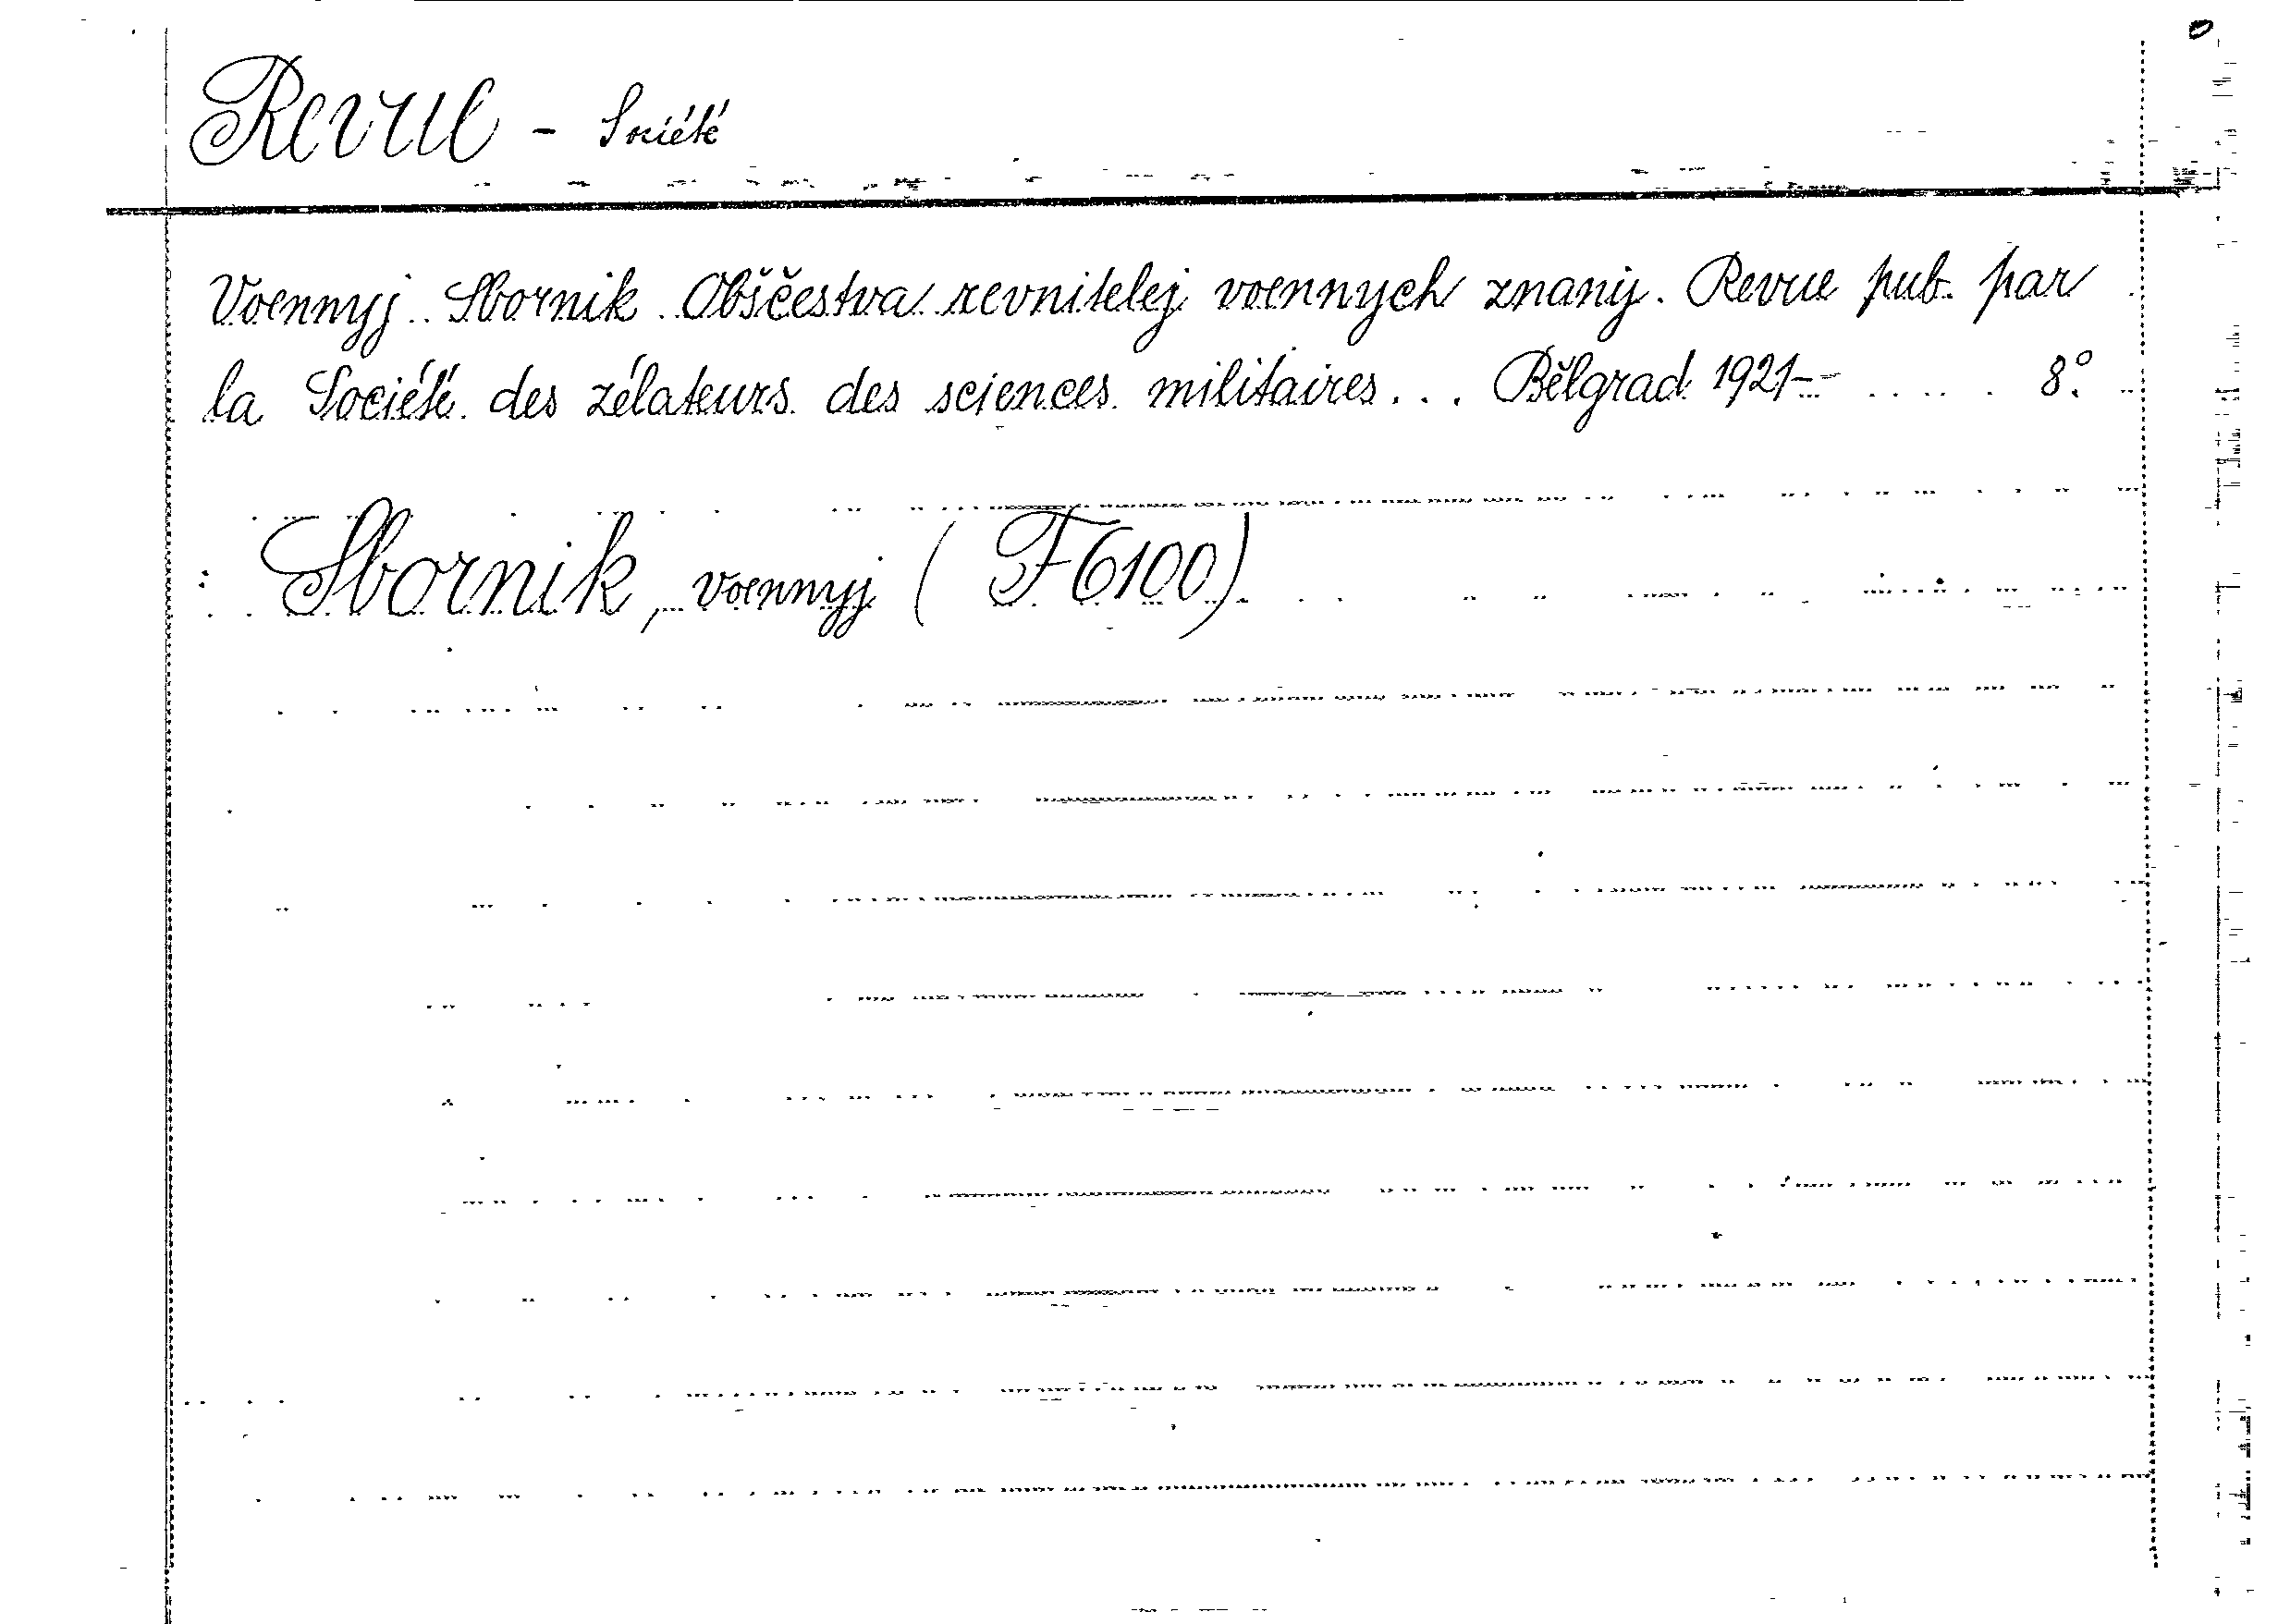 Revue - Société
Voennyj Sbornik Obščestva revnitelej voennych znanij. Revue pub. par
la Société des zélateurs des sciences militaires... Bělgrad 1921-- 8°.
Sbornik, voennyj (F6100)